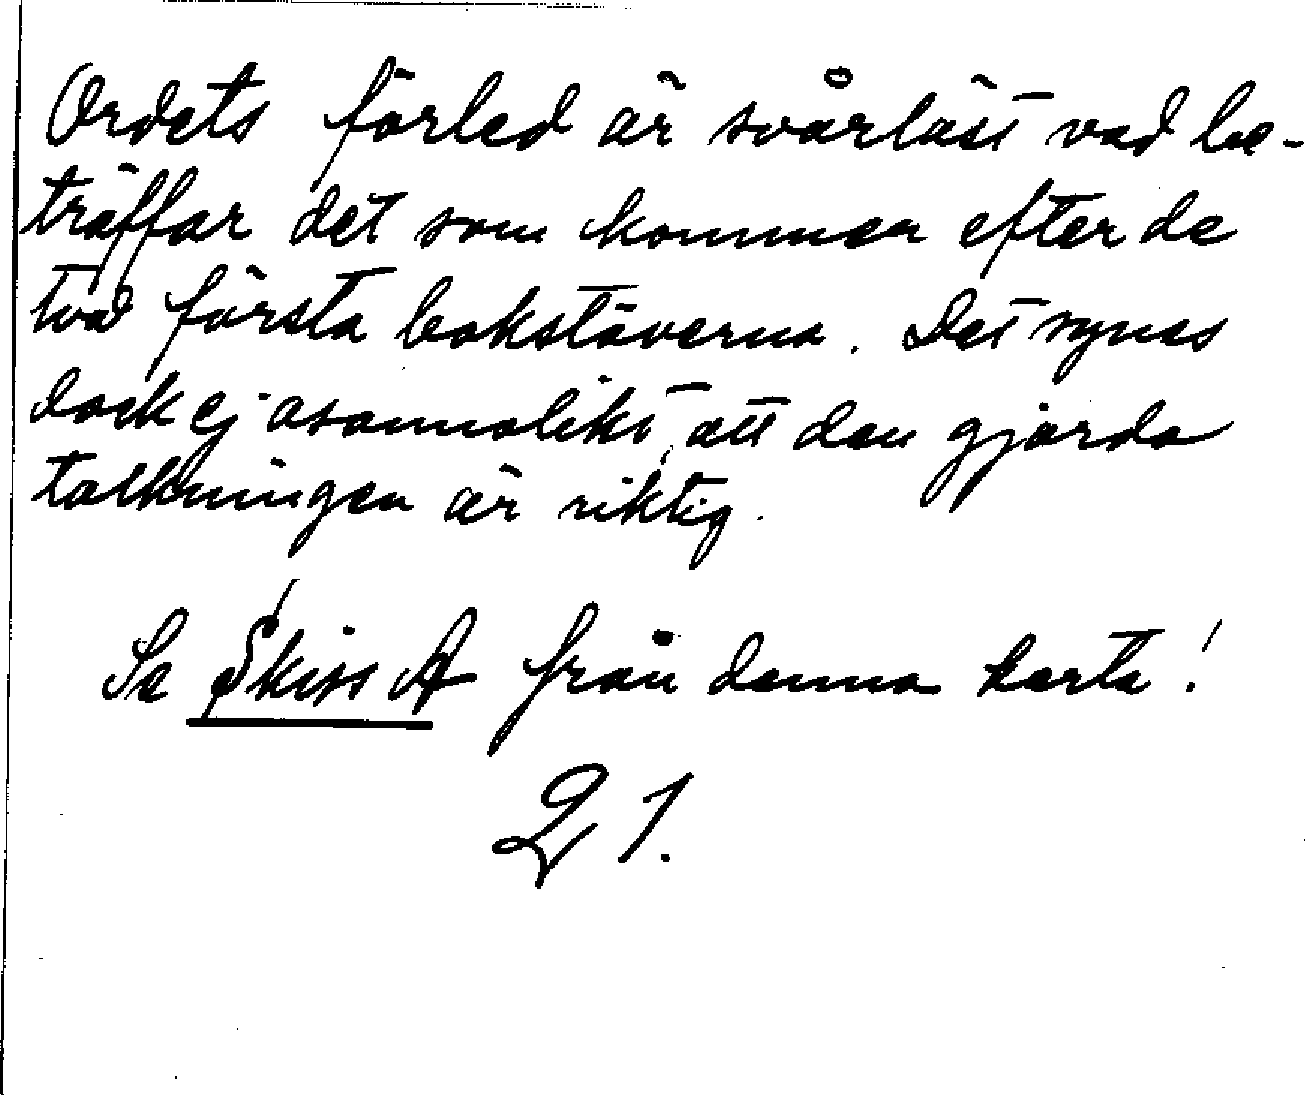 Ordets förled är svårläst vad be-
träffar det som kommer efter de
två första bokstäverna. Det synes
dock ej osannolikt att den gjorda
tolkningen är riktig.
Se Skiss A från denna karta!
21.